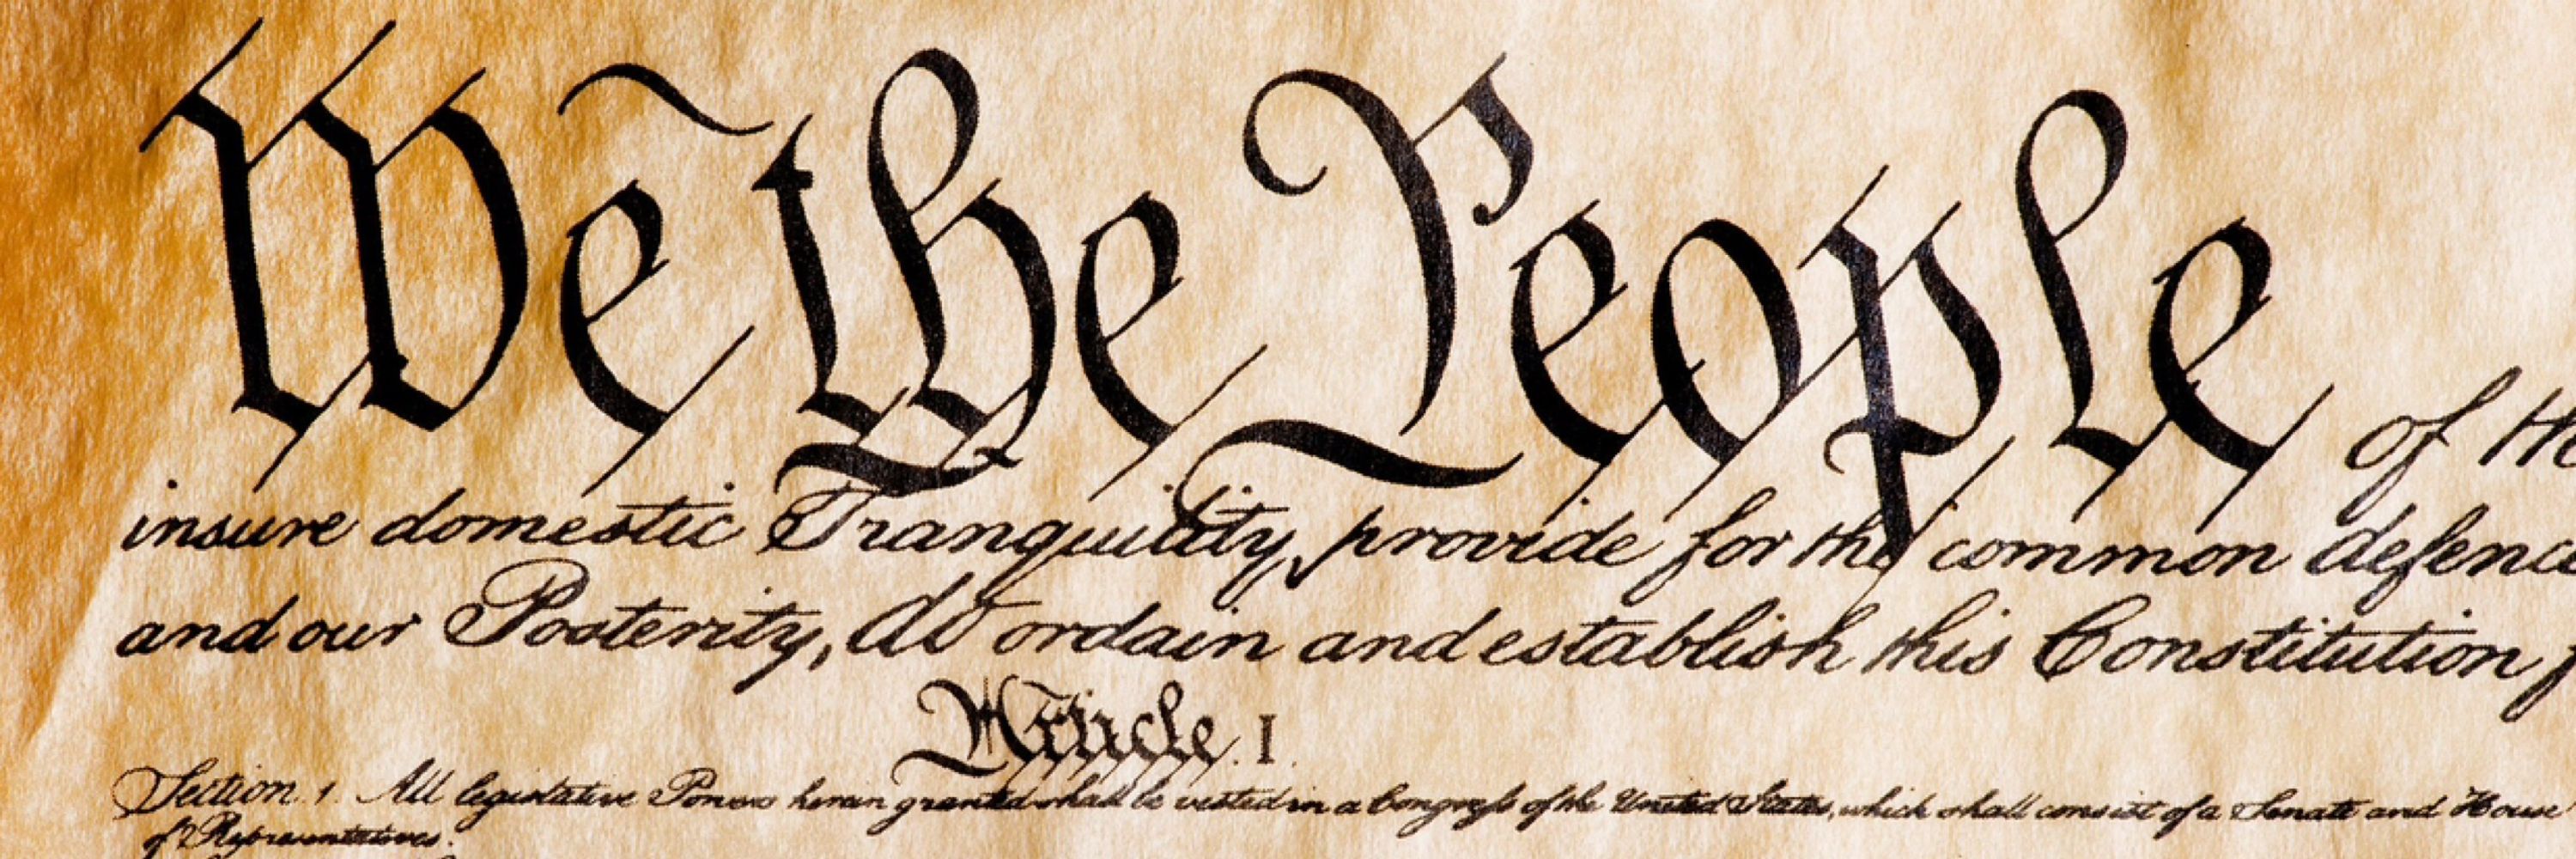 We the People of the
insure domestic Tranquility, provide for the common defence
and our Posterity, do ordain and establish this Constitution f
Article. I.
Section. 1. All legislative Powers herein granted shall be vested in a Congress of the United States, which shall consist of a Senate and House
of Representatives.